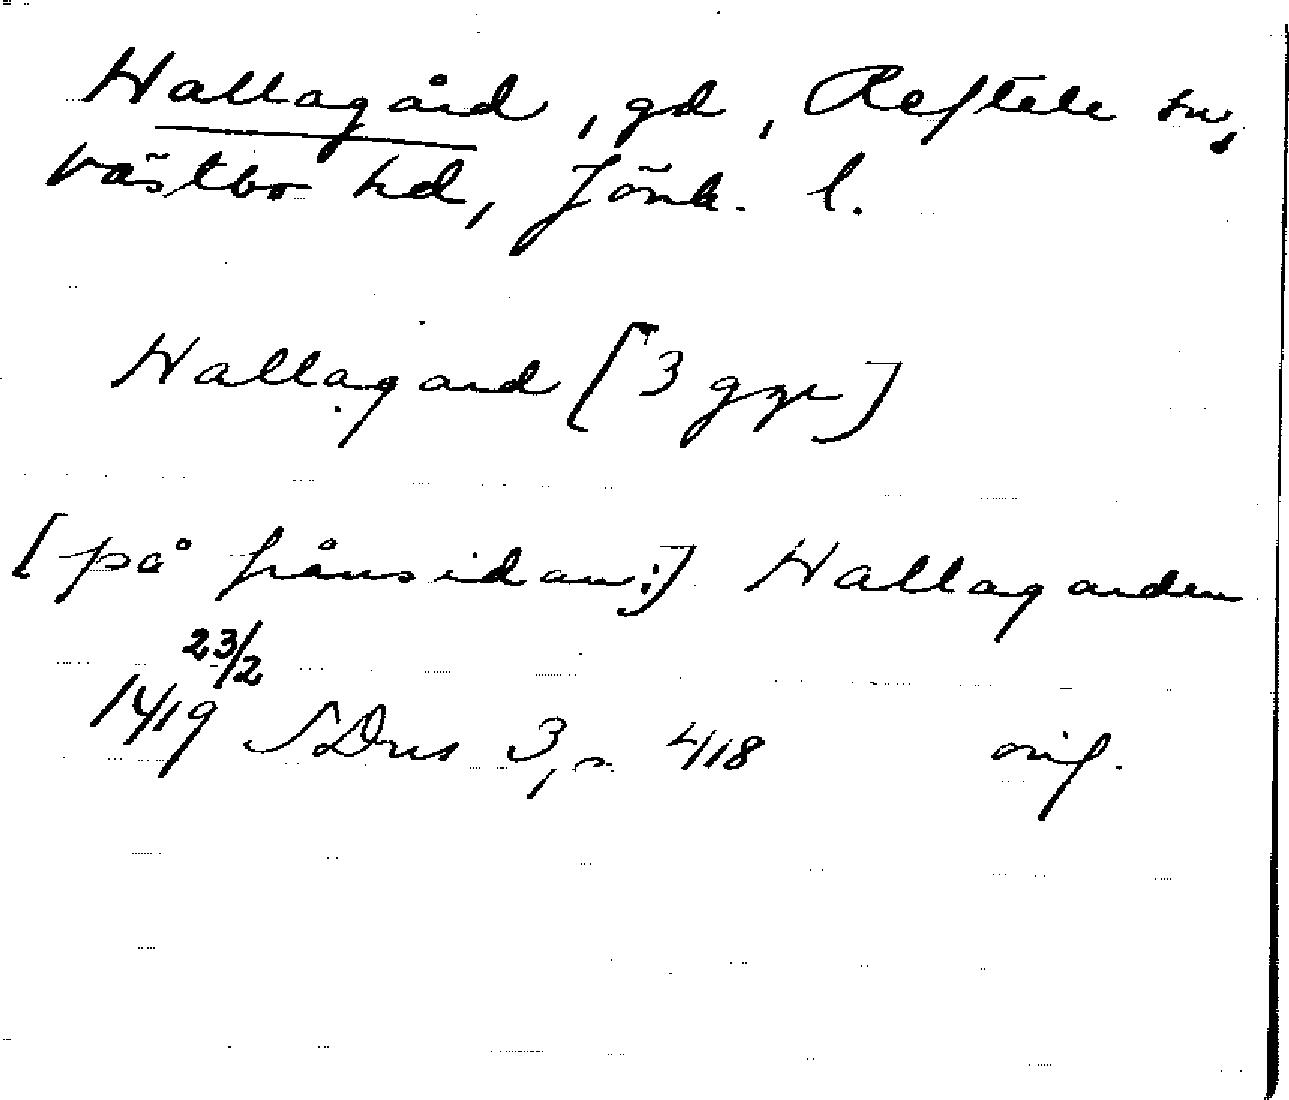 Hallagård, gd, Reftele sn,
västbo hd, Jönk. l.
Hallagard [3 ggr]
[på frånsidan:] Hallagarden
1419 23/2 SDns 3, s. 418 orig.